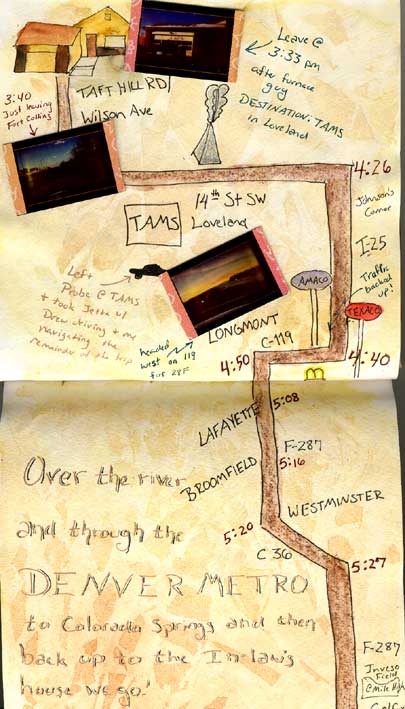 Leave @
3:33 pm
after furnace
guy
DESTINATION: TAMS
in Loveland
TAFT HILL RD
Wilson Ave
3:40
Just leaving
Fort Collins
4:26
Johnson's
Corner
I-25
14th St SW
Loveland
TAMS
Traffic
backed
up!
AMACO
TEXACO
Left
Probe @ TAMS
+ took Jetta w/
Drew driving + me
navigating the
remainder of the trip
LONGMONT
C-119
headed
west on 119
for 287
4:50
4:40
M
5:08
LAFAYETTE
F-287
5:16
BROOMFIELD
WESTMINSTER
5:20
C 36
5:27
Over the river
and through the
DENVER METRO
to Colorado Springs and then
back up to the In-law's
house we go!
F-287
Invesco
Field
@ Mile High